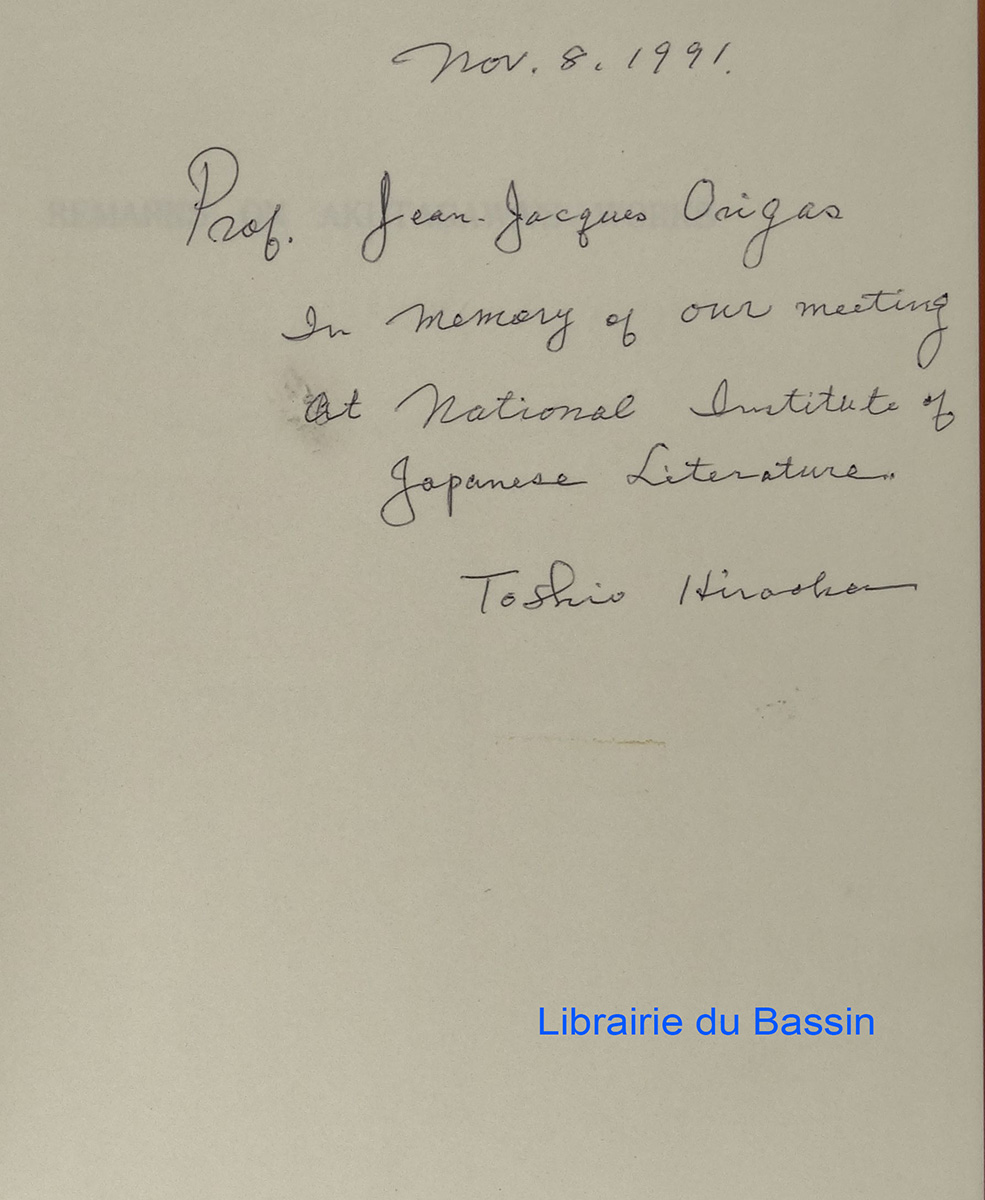 Nov. 8. 1991.
Prof. Jean-Jacques Origas
In memory of our meeting
at National Institute of
Japanese Literature.
Toshio Hiraoka
Librairie du Bassin